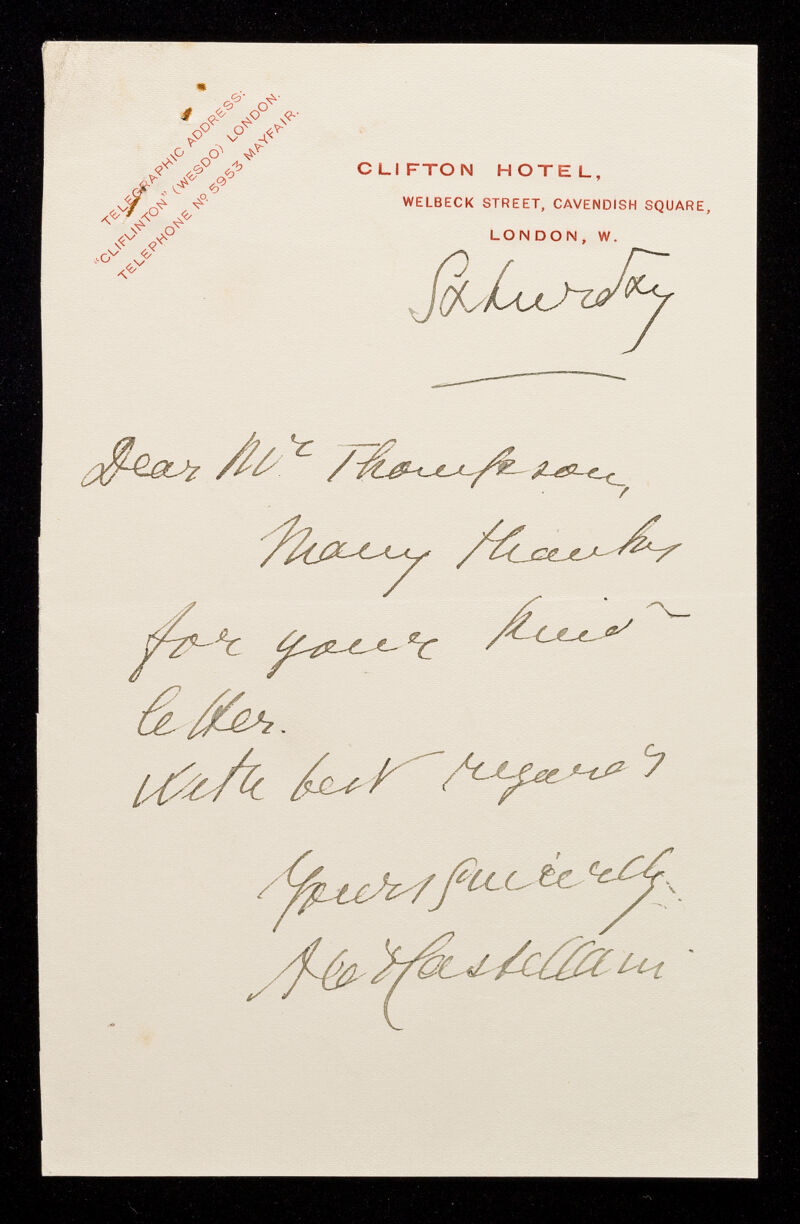 TELEGRAPHIC ADDRESS:
"CLIFLINTON" (WESDO) LONDON.
TELEPHONE Nº 5953 MAYFAIR.
CLIFTON HOTEL,
WELBECK STREET, CAVENDISH SQUARE,
LONDON, W.
Saturday
Dear Mr Thompson,
Many thanks
for your kind
letter.
With best regards
Yours sincerely
Castellani